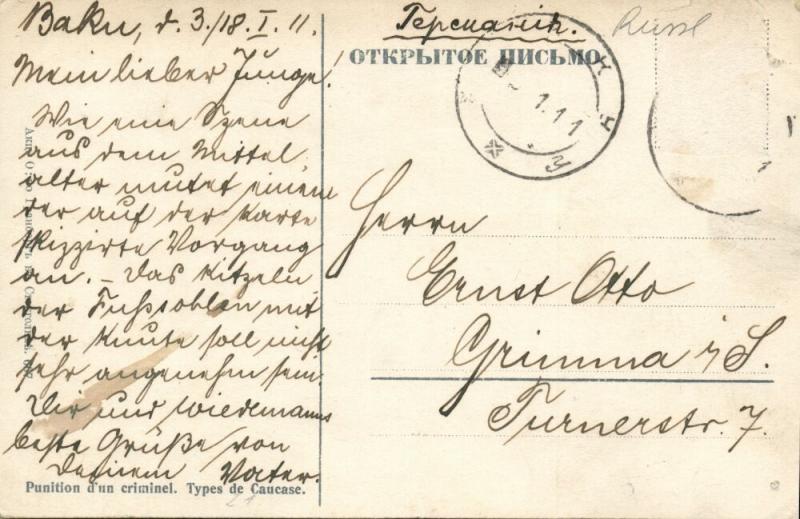 Baku, d. 3./18. I. 11.
Mein lieber Junge!
Wie eine Szene
aus dem Mittel
alter mutet einem
der auf der Karte
skizzirte Vorgang
an. – Das Kitzeln
der Fußsohlen mit
der Knute soll nicht
sehr angenehm sein.
Dir und Wiedemanns
beste Grüße von
Deinem Vater.
Punition d'un criminel. Types de Caucase.
Германія.
Russl
ОТКРЫТОЕ ПИСЬМО
1.11
Herrn
Ernst Otto
Grimma i/S.
Turnerstr. 7.